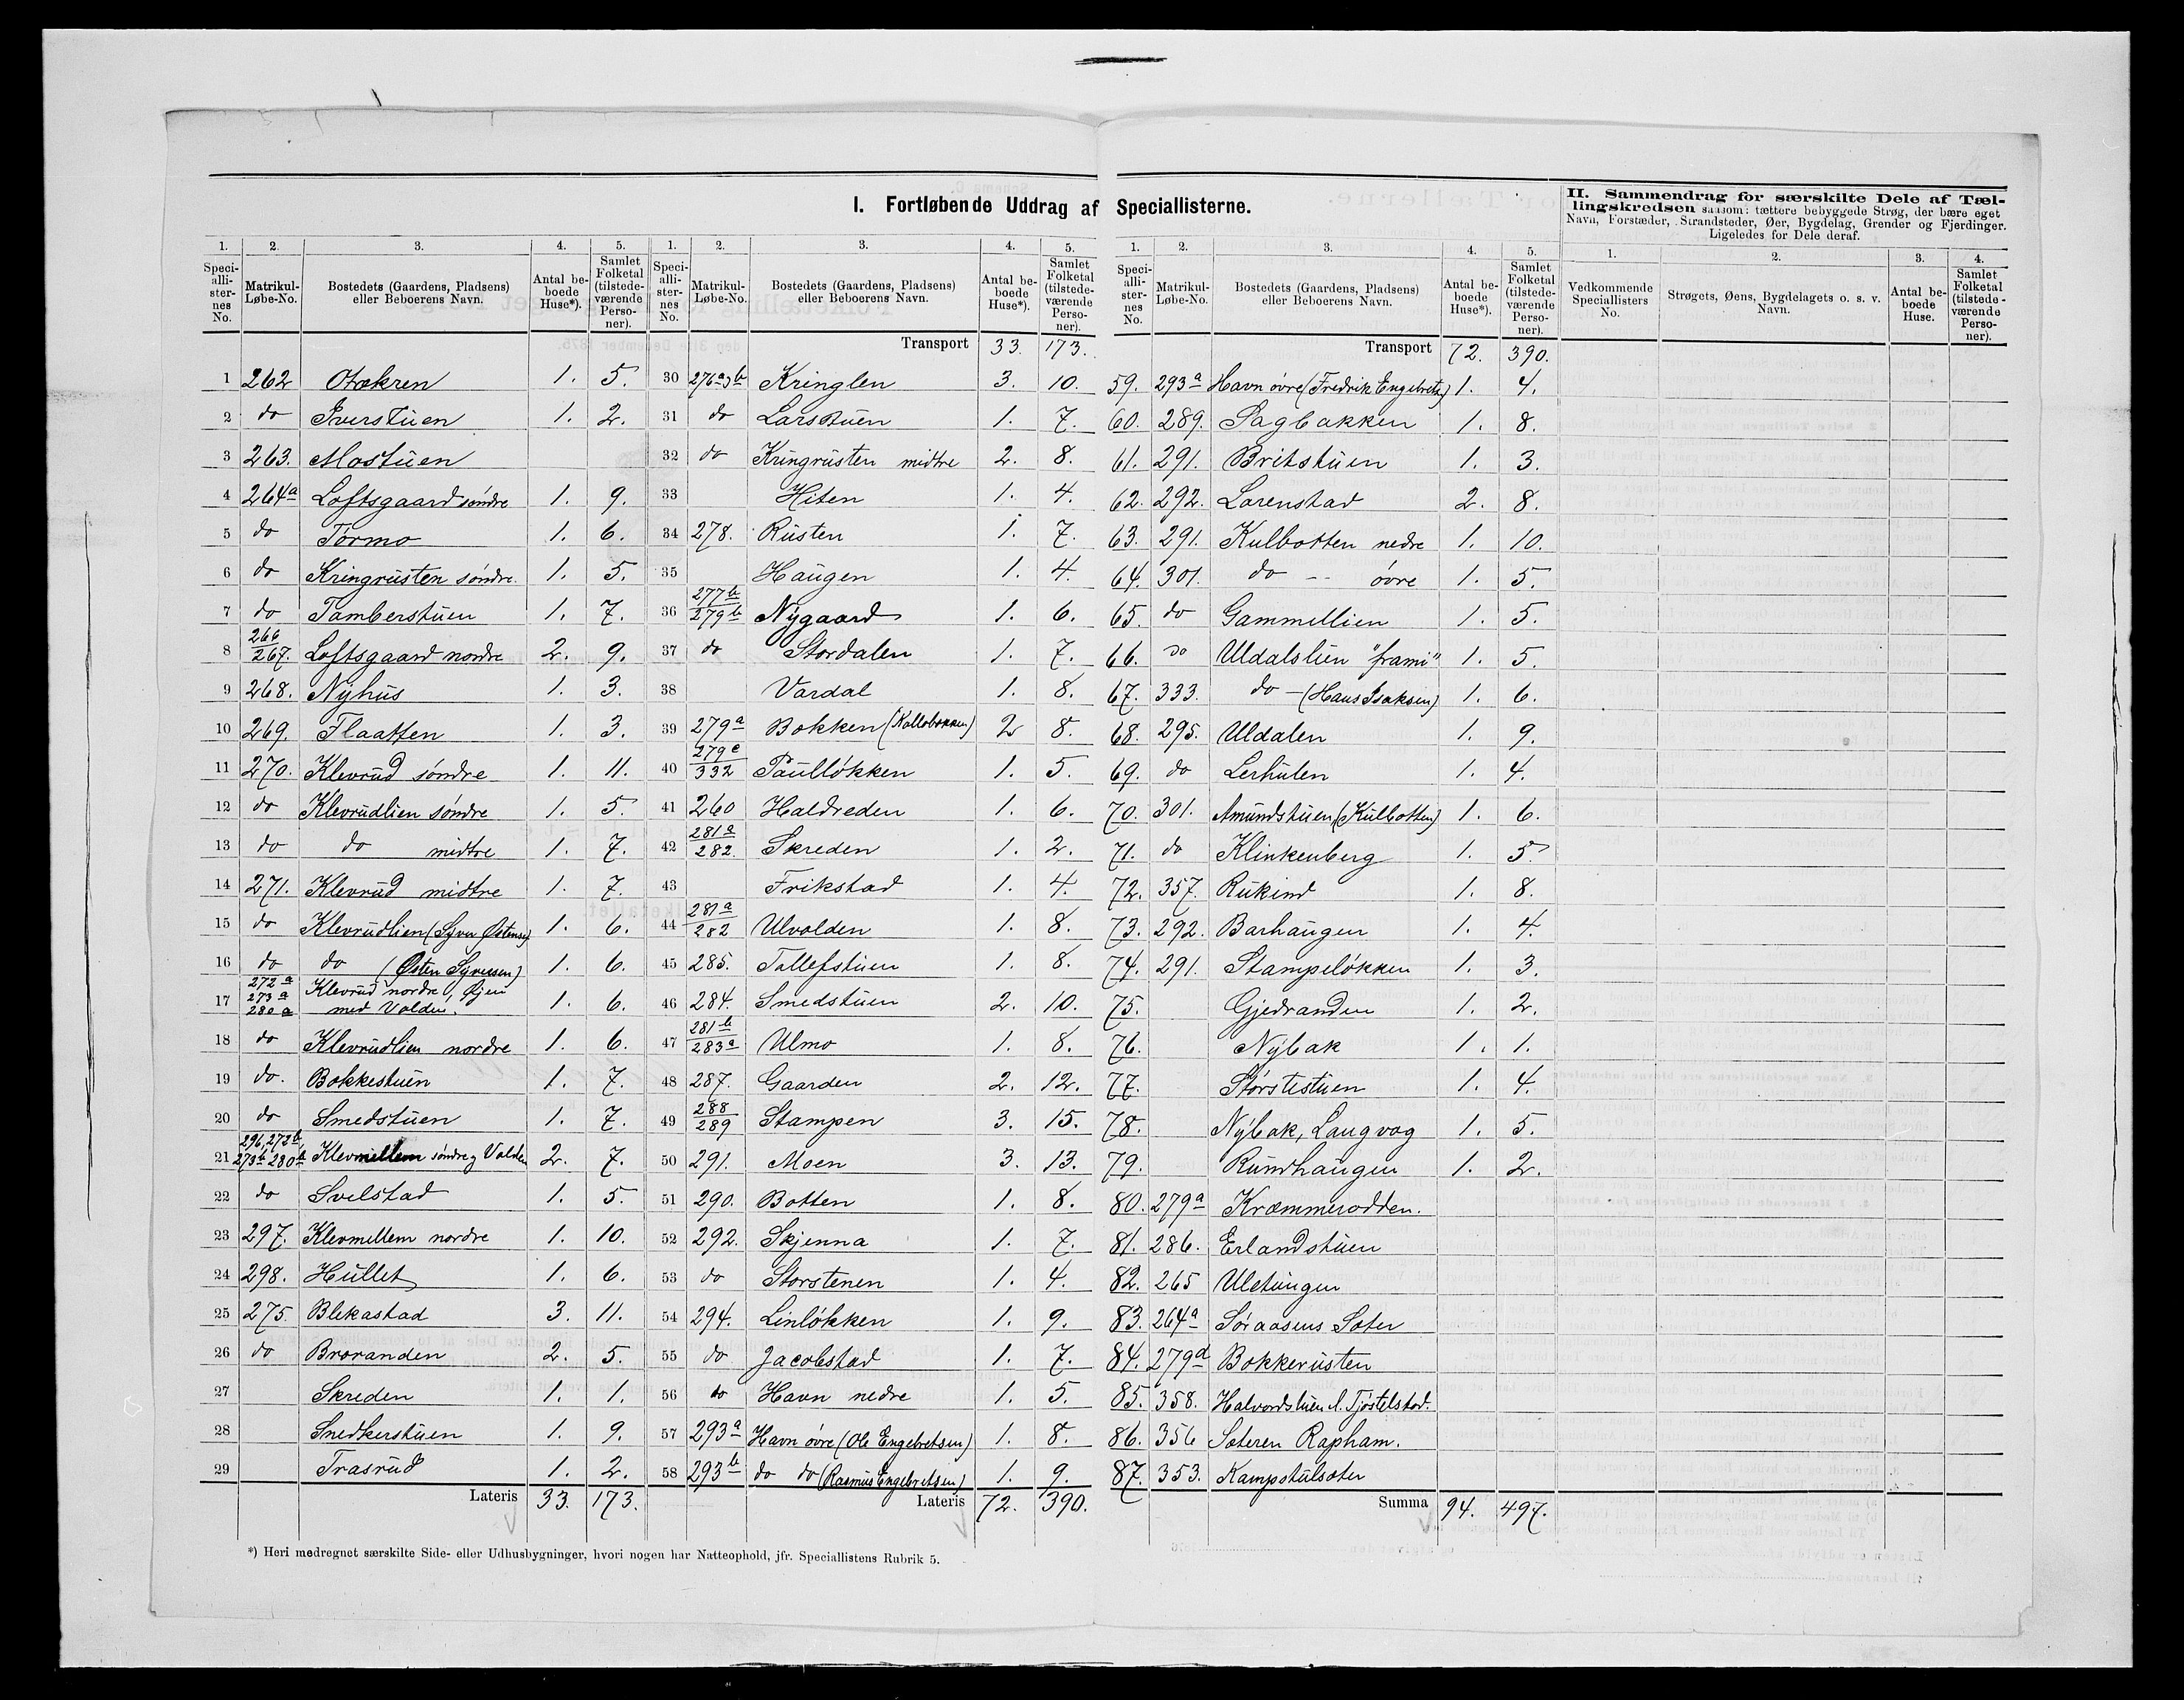 I. Fortløbende Uddrag af Speciallisterne.
II. Sammendrag for særskilte Dele af Tællingskredsen saasom: tættere bebyggede Strøg, der bære eget
Navn, Forstæder, Strandsteder, Øer, Bygdelag, Grender og Fjerdinger.
Ligeledes for Dele deraf.
1. 2. 3. 4. 5. 1. 2. 3. 4. 5.
Speciallisternes No. Matrikul-Løbe-No. Bostedets (Gaardens, Pladsens) eller Beboerens Navn. Antal beboede Huse*). Samlet Folketal (tilstedeværende Personer).
1 262 1. 5.
2 do Iverstuen 1. 2.
3 263. Mostuen
4 264a Loftsgaard söndre 1. 9.
5 do Tormo 1. 6.
6 do Kringrusten söndre. 1. 5.
7 do Tamberstuen 1. 7.
8 266/267. Loftsgaard nordre 2. 9.
9 268. Nyhus 1. 3.
10 269. Flaatten 1. 3.
11 270. Klevrud söndre 1. 11.
12 do Klevrudlien söndre 1. 5.
13 do do midtre 1. 7.
14 271. Klevrud midtre 1. 7.
15 do Klevrudlien (Syver Østensen) 1. 6.
16 do do (Østen Syversen) 1. 6.
17 272a 273a 280a Klevrud nordre, Øjen med Volden. 1. 6.
18 do Klevrudlien nordre 1. 6.
19 do. Bokkestuen 1. 7.
20 do Smedstuen 1. 7.
21 296, 272b, 273b 280b Klevmellem söndre, Volden 2. 7.
22 do Svelstad 1. 5.
23 297. Klevmellem nordre 1. 10.
24 298. Hullet 1. 6.
25 275. Blekastad 3. 11.
26 do Broranden 2. 5.
27 Skreden 1. 1.
28 Snedkerstuen 1. 9.
29 Trasrud 1. 2.
Lateris 33. 173.
Transport 33. 173.
30 276a,b Kringlen 3. 10.
31 do Larsstuen 1. 7.
32 do Kringrusten midtre 2. 8.
33 Hiten 1. 4.
34 278. Rusten 1. 7.
35 Haugen 1. 4.
36 277b/279b Nygaard 1. 6.
37 do Stordalen 1. 7.
38 Vardal 1. 8.
39 279a Bokken (Kollebokken) 2 8.
40 279c/332 Paullökken 1. 5.
41 260 Haldreden 1. 6.
42 281a/282. Skreden 1. 2.
43 Frikstad 1. 4.
44 281a/282 Ulvolden 1. 8.
45 285. Tollefstuen 1. 8.
46 284. Smedstuen 2. 10.
47 281b/283a Ulmo 1. 8.
48 287. Gaarden 2. 12.
49 288/289 Stampen 3. 15.
50 291. Moen 3. 13.
51 290. Botten 1. 8.
52 292. Skjenna 1. 7.
53 do Storstenen 1. 4.
54 294. Linlökken 1. 9.
55 do Jacobstad 1. 7.
56 do Havn nedre 1. 5.
57 293a Havn övre (Ole Engebretsen) 1. 8.
58 293b do do (Rasmus Engebretsen) 1. 9.
Lateris 72. 390.
1. 2. 3. 4. 5.
Speciallisternes No. Matrikul-Løbe-No. Bostedets (Gaardens, Pladsens) eller Beboerens Navn. Antal beboede Huse*). Samlet Folketal (tilstedeværende Personer).
Transport 72. 390.
59. 293a Havn övre (Fredrik Engebrets) 1. 4.
60. 289. Sagbakken 1. 8.
61. 291. Britstuen 1. 3.
62. 292. Lorenstad 2. 8.
63. 291. Kulbotten nedre 1. 10.
64. 301. do -- övre 1. 5.
65. do Gammellien 1. 5.
66. do Uldalslien "frami" 1. 5.
67. 333. do - (Hans Isaksen) 1. 6.
68. 295. Uldalen 1. 9.
69. do Lerhulen 1. 4.
70. 301. Amundstuen (Kulbotten) 1. 6.
71. do Klinkenberg 1. 5.
72. 357. Rukind 1. 8.
73. 292. Barhaugen 1. 4.
74. 291. Stampelökken 1. 3.
75. Gjedranden 1. 2.
76. Nybak 1. 1.
77. Störstestuen 1. 4.
78. Nybak, Laugvog 1. 5.
79. Rundhaugen 1. 2.
80. 279a Kræmmerodden.
81. 286. Erlandstuen
82. 265 Uletungen
83. 264a Söraasens Sæter
84. 279d Bokkerusten
85. 358. Halvordstuen l. Tjöstelstad.
86. 356 Sæteren Rapham.
87. 353. Kampstulsæter
Summa 94. 497.
1. 2. 3. 4.
Vedkommende Speciallisters No. Strøgets, Øens, Bygdelagets o. s. v. Navn. Antal beboede Huse. Samlet Folketal (tilstedeværende Personer).
*) Heri medregnet særskilte Side- eller Udhusbygninger, hvori nogen har Natteophold, jfr. Speciallistens Rubrik 5.